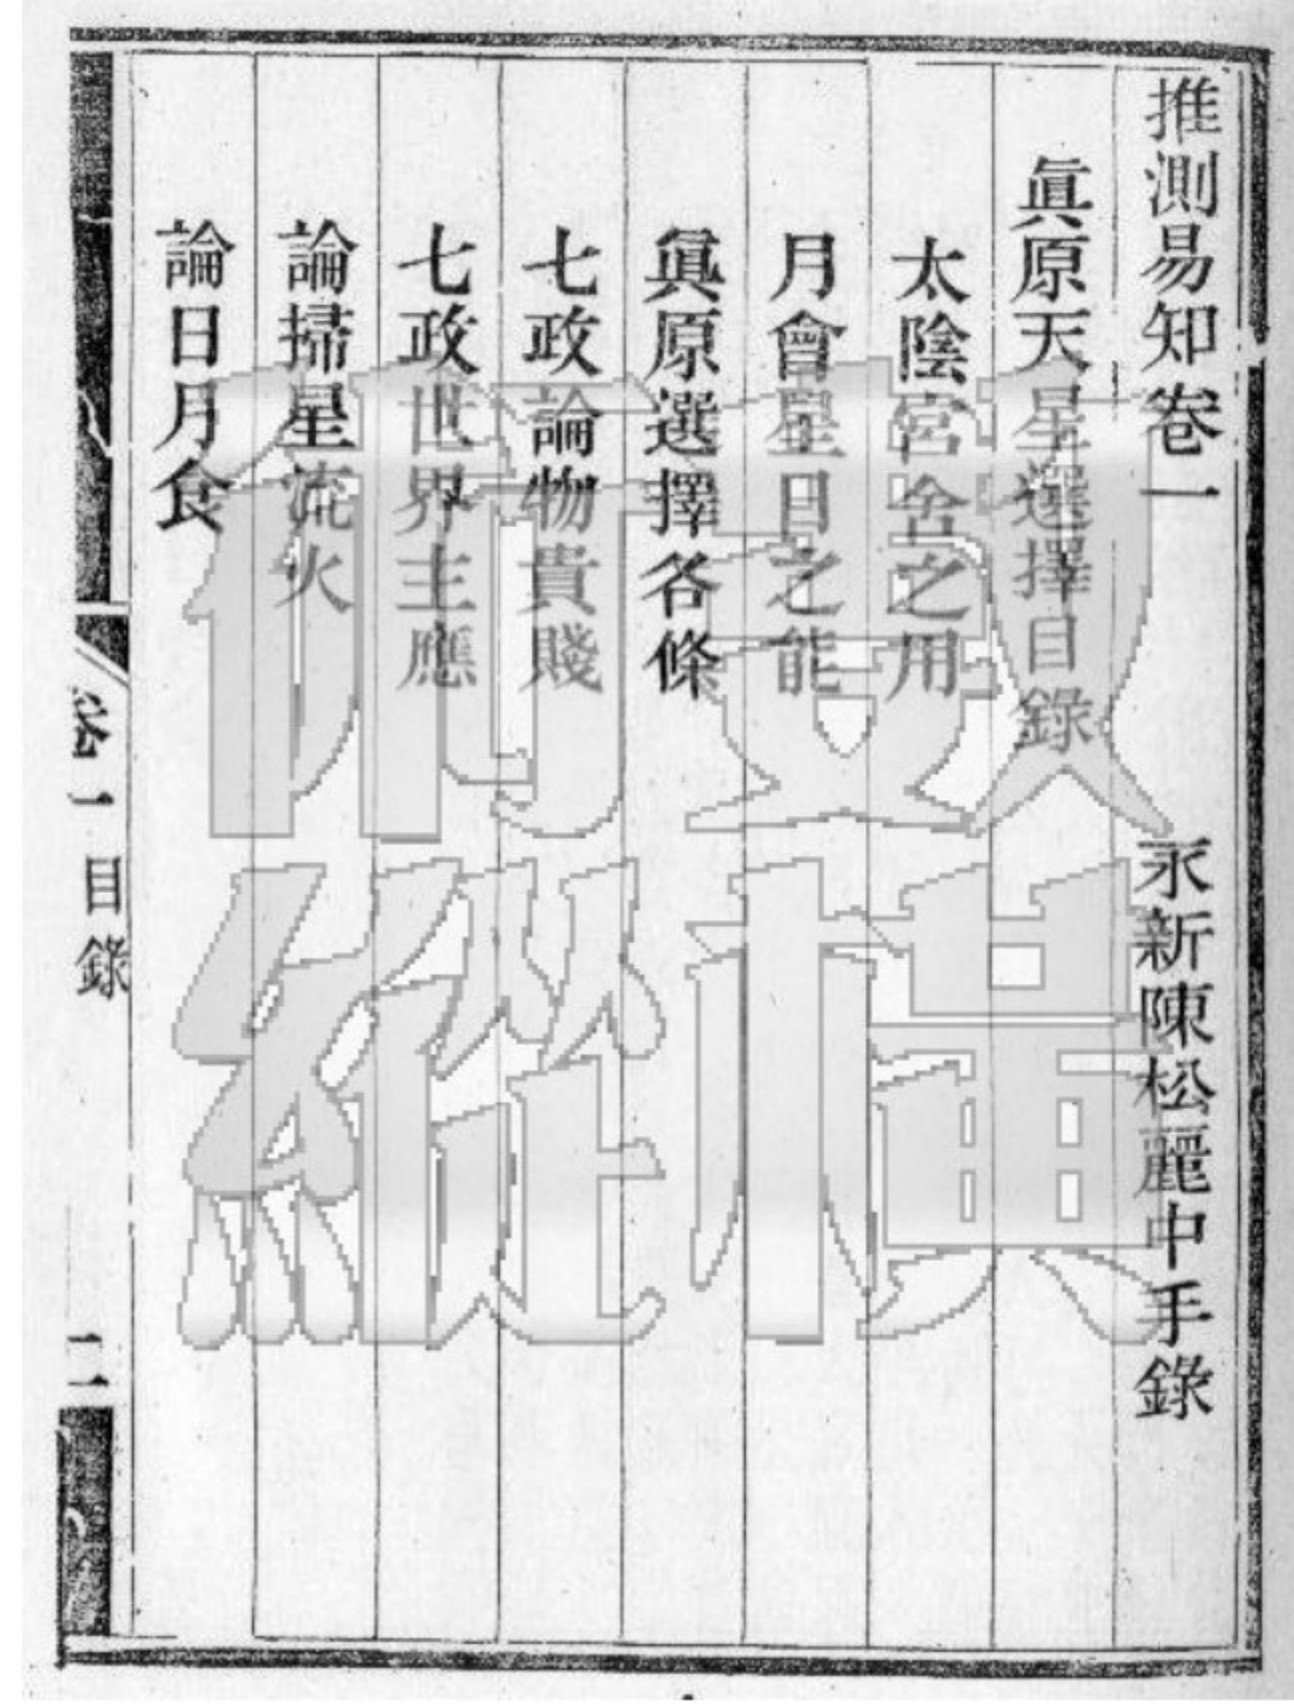 推測易知卷一　永新陳松麗中手錄
眞原天星選擇目錄
太陰宮舍之用
月會星日之能
眞原選擇各條
七政論物貴賤
七政世界主應
論掃星流火
論日月食
卷一 目錄 二
縱橫